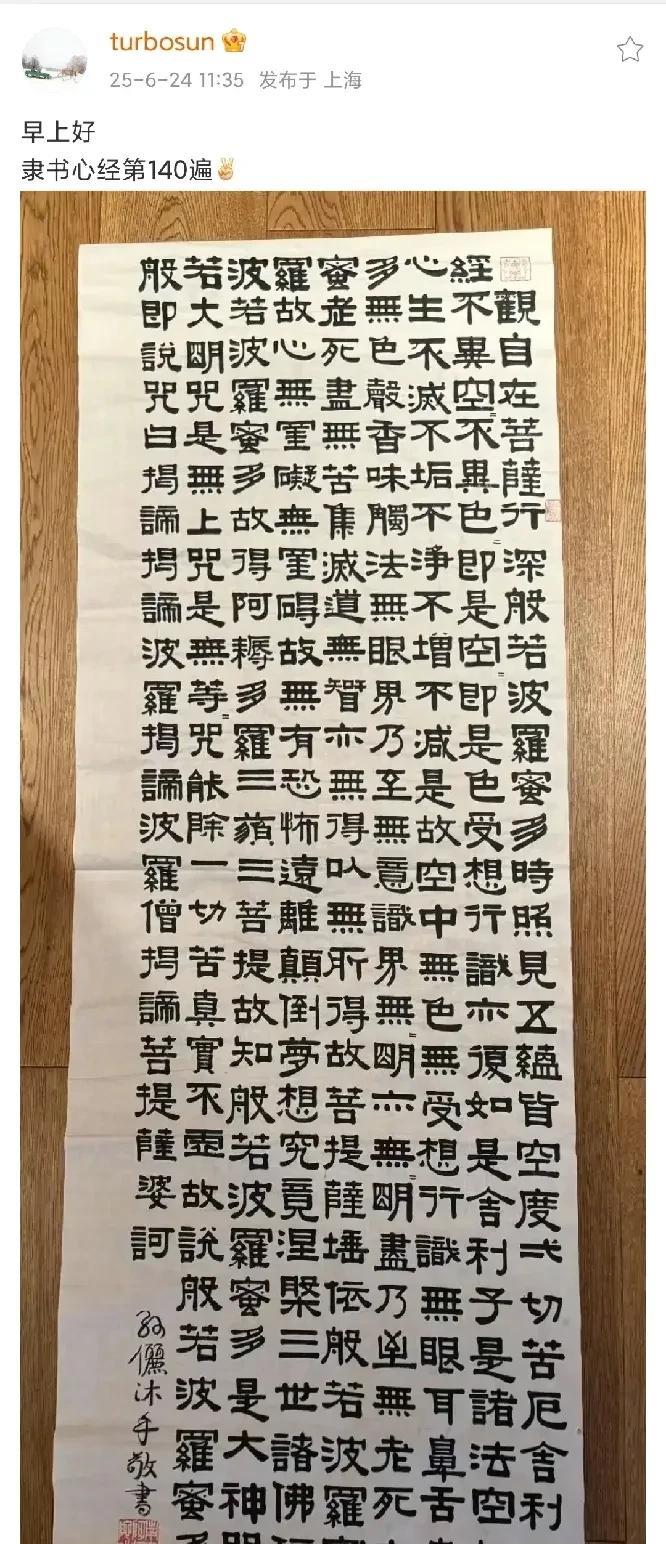 turbosun
25-6-24 11:35 发布于 上海
早上好
隶书心经第140遍✌
般若波羅蜜多心經
觀自在菩薩行深般若波羅蜜多時照見五蘊皆空度弌切苦厄舍利
不異空=不異色=即是空=即是色受想行識亦復如是舍利子是諸法空
生不滅不垢不淨不增不減是故空中無色無受想行識無眼耳鼻舌
無色聲香味觸法無眼界乃至無意識界無=明亦無=明盡乃至無老死
老死盡無苦集滅道無智亦無得以無所得故菩提薩埵依般若波羅
故心無罣礙無罣碍故無有恐怖遠離顛倒夢想究竟涅槃三世諸佛
若波羅蜜多故得阿耨多羅三藐三菩提故知般若波羅蜜多是大神
大明咒是無上咒是無等=咒能除一切苦真實不虛故說般若波羅蜜
即說咒曰揭諦揭諦波羅揭諦波羅僧揭諦菩提薩婆訶
孫儷沐手敬書